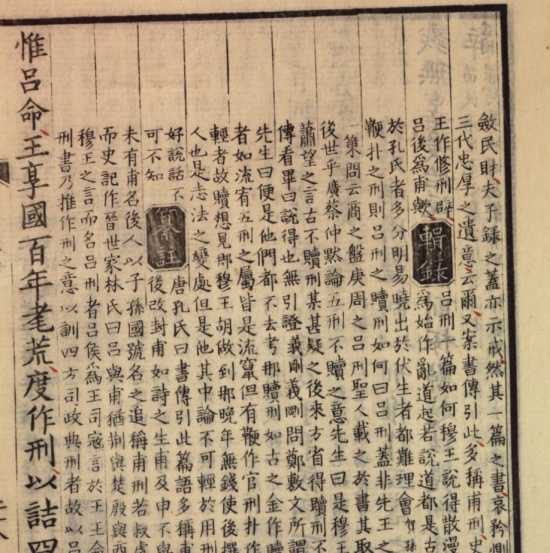 斂民財夫子錄之蓋亦示戒然其一篇之書哀矜惻
三代忠厚之遺意云爾又案書傳引此多稱甫刑史
王作修刑辟
呂後爲甫歟 輯錄 呂刑一篇如何穆王說得散漫
爲始作亂道起若說道都是古
於孔氏者多分明易曉出於伏生者都難理會賀孫
鞭扑之刑則呂刑之贖刑如何曰呂刑蓋非先王之
策問云商之盤庚周之呂刑聖人載之於書其取
後世乎廣蔡仲黙論五刑不贖之意先生曰是穆王
蕭望之言古不贖刑某甚疑之後來方省得贖刑不
傳看畢曰說得也無引證義剛義剛問鄭敷文所謂
先生曰便是他們都不去考那贖刑如古之金作贖
者如流宥五刑之屬皆是流竄但有鞭作官刑扑作
輕者故贖想見那穆王胡做到那晚年無錢使後撰
人也是志法之變處但是他其中論不可輕於用刑
好說話不
可不知 纂註 唐孔氏曰書傳引此篇語多稱甫
後改封甫如詩之生甫及申不與
未有甫名後人以子孫國號名之追稱甫刑若叔虞
而史記作晉世家林氏曰呂與甫猶荆與楚殷與商
穆王之言而名呂刑者呂侯爲王司寇言於王王命
刑書乃推作刑之意以訓四方司政典刑者故以呂
惟呂命王享國百年耄荒度作刑以詰四